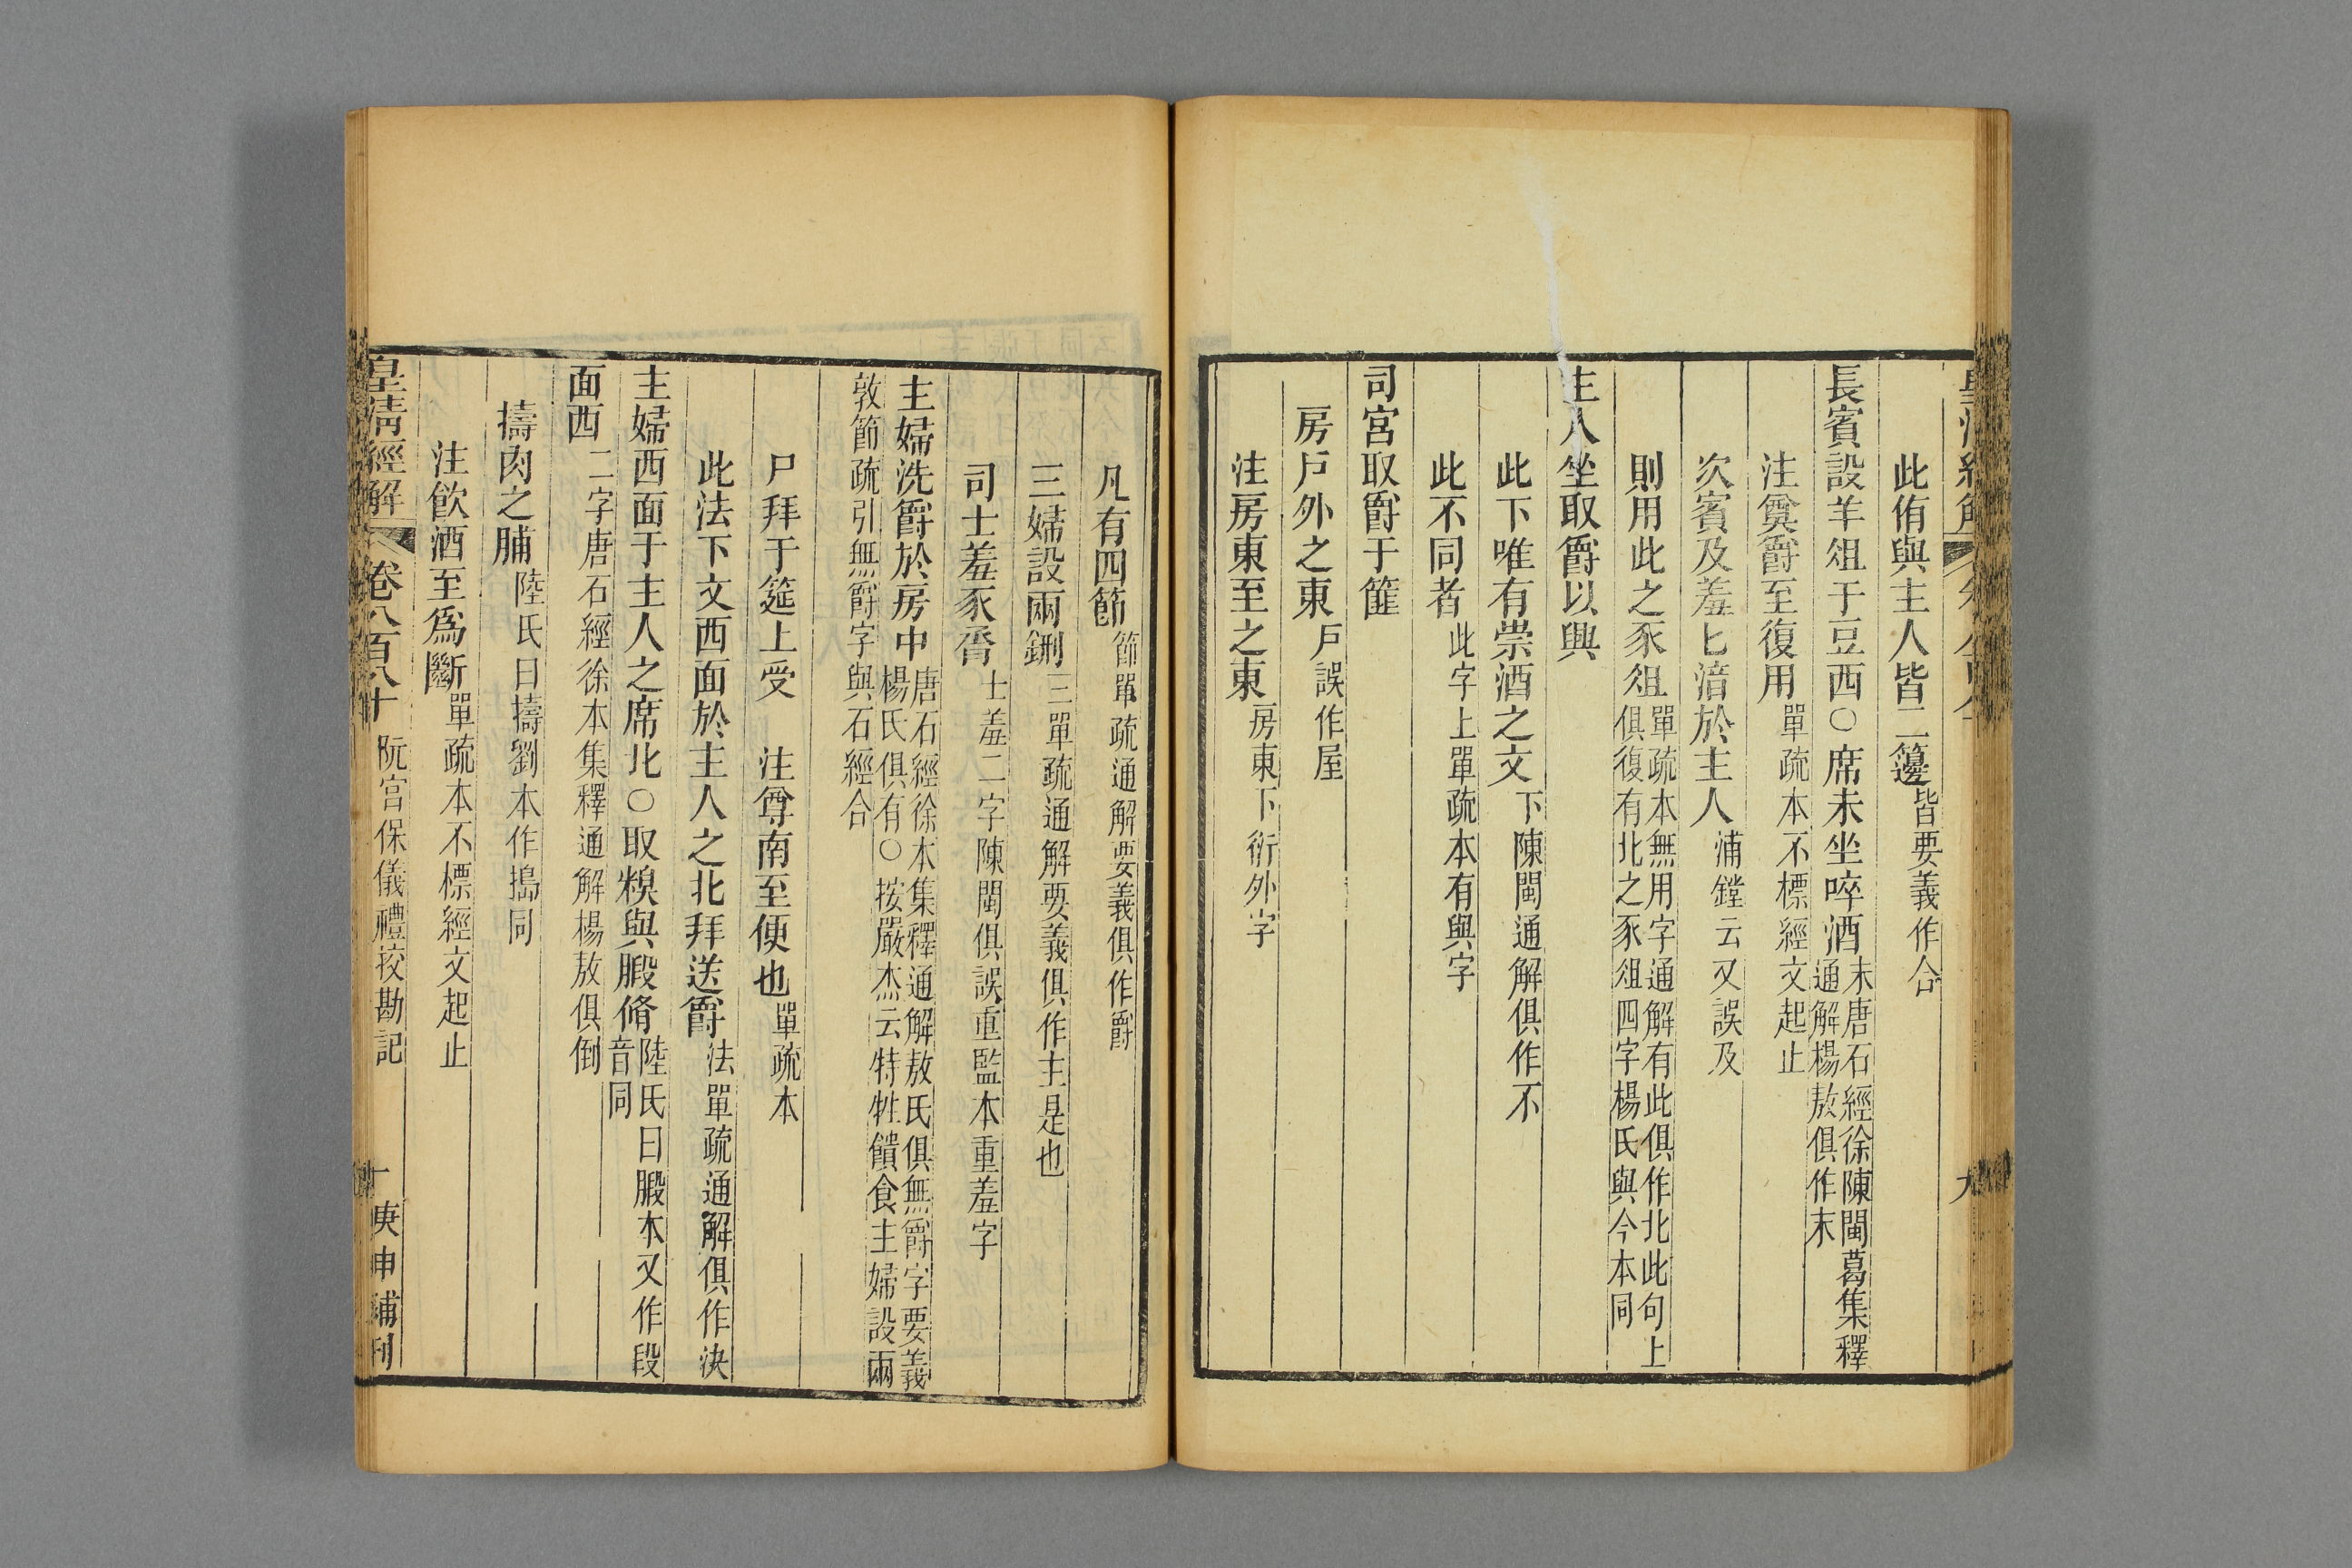 此侑與主人皆二籩皆要義作合
長賓設羊俎于豆西○席未坐啐酒末唐石經徐陳閩葛集釋通解楊敖俱作末
注奠爵至復用單疏本不標經文起止
次賓及羞匕湆於主人浦鏜云又誤及
則用此之豕俎單疏本無用字通解有此俱作北此句上俱復有北之豕俎四字楊氏與今本同
主人坐取爵以興
此下唯有崇酒之文下陳閩通解俱作不
此不同者此字上單疏本有與字
司宮取爵于篚
房戶外之東戶誤作屋
注房東至之東房東下衍外字
凡有四節節單疏通解要義俱作爵
三婦設兩鉶三單疏通解要義俱作主是也
司士羞豕脀士羞二字陳閩俱誤重監本重羞字
主婦洗爵於房中唐石經徐本集釋通解敖氏俱無爵字要義楊氏俱有○按嚴杰云特牲饋食主婦設兩
敦節疏引無爵字與石經合
尸拜于筵上受 注尊南至便也單疏本
此法下文西面於主人之北拜送爵法單疏通解俱作決
主婦西面于主人之席北○取糗與腶脩陸氏曰腶本又作段音同
面西二字唐石經徐本集釋通解楊敖俱倒
擣肉之脯陸氏曰擣劉本作搗同
注飲酒至爲斷單疏本不標經文起止
皇清經解 卷八百八十 阮宮保儀禮挍勘記 十 庚申補刊